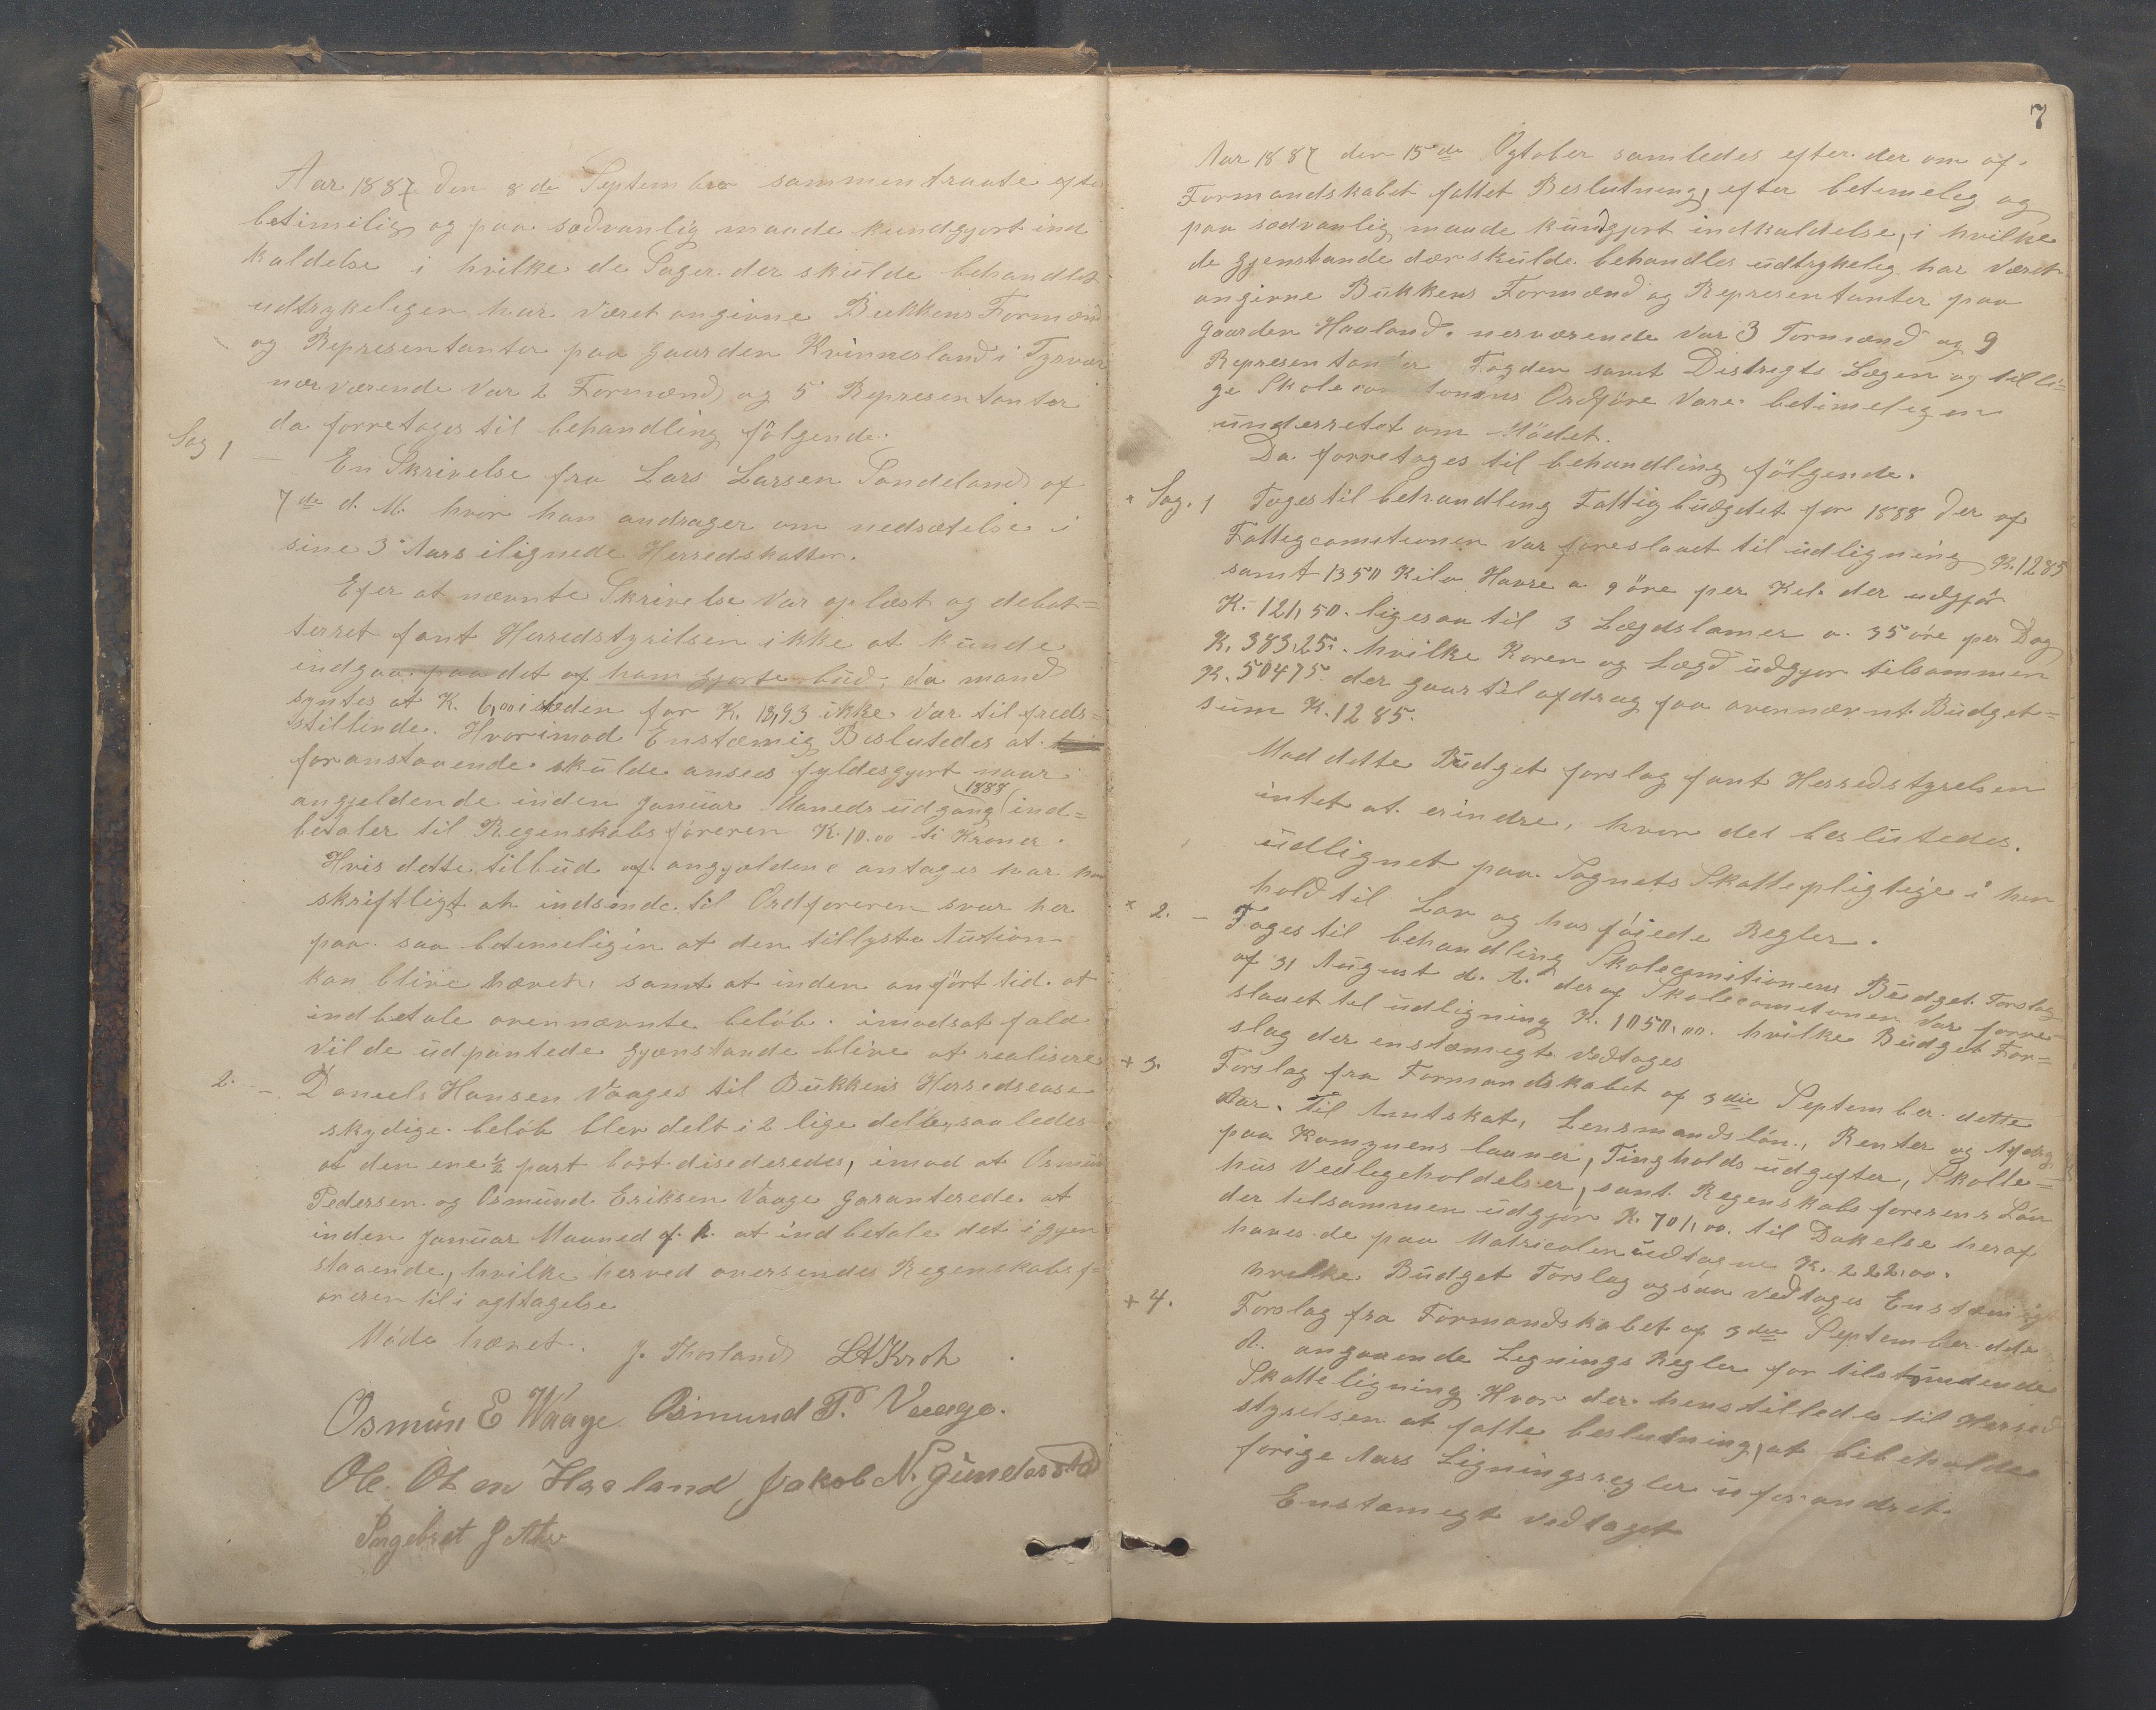 Aar 1887 den 8de September sammentraate efter
betimilig og paa sædvanlig maade kundgjort ind
kaldelse i hvilke de Sager der skulde behandles
udtrykeligen har været angivne Bukkens Formænd
og Representanter paa gaarden Kvinnesland i Tysvær
nærværende var 2 Formænd og 5 Representanter
da forretages til behandling følgende.
Sag 1 — En Skrivelse fra Lars Larsen Sandeland af
7de d. M. hvor han andrager om nedsætelse i
sine 3 Aars ilignede Herredskatter.
Efer at nævnte Skrivelse var oplæst og debat=
terret fant Herredstyrilsen ikke at kunde
indgaa paa det af ham gjorte bud, da mand
syntes at K. 6,00 isteden for K. 18,93 ikke var tilfreds=
stillende. Hvorimod Enstæmig Beslutedes at
foranstaaende skulde ansees fyldesgjort naar
angjeldende inden Januar Maaneds udgang 1888 ind=
betaler til Regenskabsføreren K. 10.00 ti Kroner.
Hvis dette tilbud af angjældene antages har han
skriftligt at indsende til Ordføreren svar her
paa saa betemeligin at den tillyste Aution
kan blive hævet, samt at inden anført tid at
indbetale ovennævnte beløb. imodsat fald
vil de udpantede gjænstande blive at realisere
2. — Daniels Hansen Vaages til Bukkens Herredscase
skydige beløb blev delt i 2 lige dele, saaledes
at den ene ½ part bort disederedes, imod at Osmun
Pedersen og Osmund Eriksen Vaage garanterede at
inden Januar Maaned f. k. at indbetale det igjen
staaende, hvilke herved oversendes Regenskabsf=
øreren til i agttagelse
Møde hævet. J. Thorland LAKroh
Osmun E Waage. Osmund P. Vaage.
Ole. Olsen Haaland Jakob N. Gunders
Ingebret J
7
Aar 1887 den 15de Ogtober samledes efter der om af
Formandskabet fattet Beslutning, efter betimeleg og
paa sædvanlig maade kundgjort indkaldelse, i hvilke
de gjenstande der skulde behandles udtrykeleg har været
angivne Bukkens Formænd og Representanter paa
gaarden Haaland. nerværende var 3 Formænd og 9
Representanter Fogden samt Distrigts Lægen og tilli=
ge Skolecom Ordføre vare betimelegen
underretet om Mødet.
Da forretages til behandling følgende.
× Sag. 1 Toges til behandling Fattigbudgetet for 1888 der af
Fattigcomitionen var foreslaaet til udligning K. 1285
samt 1350 Kilo Havre a 9 øre per Kil. der udgjør
K. 121,50. ligesaa til 3 Lægdslamer a. 35 øre per Dag
K. 383,25. hvilke Koren og Lægd udgjør tilsammen
K. 50475. der gaar til afdrag paa ovennævnt Budget=
sum K. 1285.
Mod dette Budget forslag fant Herredstyrelsen
intet at erindre, hvor det beslutedes.
udlignet paa Sognets Skattepligtige i hen
hold til Lov og hos føiede Regler.
× 2. — Toges til behandling Skolecomitionens Budget Forslag
af 31 August d. A. der af Skolecomitionen var forre=
slaaet til udligning K. 1050,00. hvilke Budget For=
slag der enstæmegt vedtoges
+ 3. Forslag fra Formandskabet af 3die September dette
Aar. Til Amtskat, Lensmandsløn, Renter og Afdrag
paa Komynens laaner, Tingholds udgifter, Skolle=
hus Vedlegeholdelser, samt Regenskabsførerens Løn
der tilsammen udgjør K. 701,00. til Dækelse heraf
haves de paa Matricolen udtagne K. 222.00.
hvilke Budget Forslag ogsaa vedtoges Enstæmig
+ 4. Forslag fra Formandskabet af 3die September dets
A. angaaende Lignings Regler for tilstundende
Skatteligning. Hvor der henstilledes til Herred
styrelsen at fatte beslutning, at bibeholdes
forige Aars Ligningsregler uforandret.
Enstæmegt vedtaget